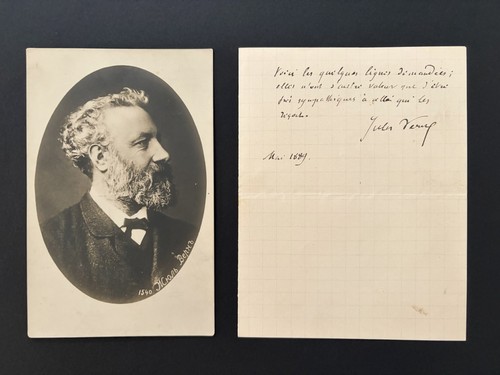 1540 Жюль Вернъ
Voici les quelques lignes demandées ;
elles n'ont d'autre valeur que d'être
très sympathiques à celui qui les
reçoit.
Jules Verne
Mai 1889.